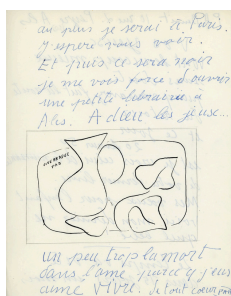 au plus je serai à Paris.
J'espère vous voir.
Et puis ce sera noir
je me vois forcé d'ouvrir
une petite librairie à
Alès. Adieu les jeux...
PAB
un peu trop la mort
dans l'âme parce que j'eus
aimé VIVRE. de tout coeur